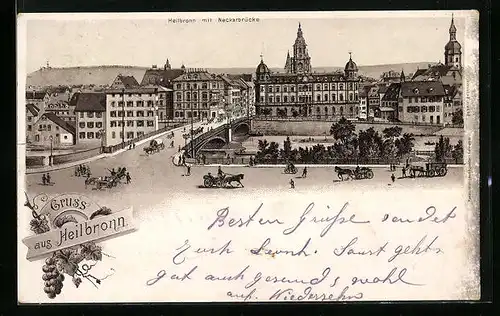 Heilbronn mit Neckarbrücke
Gruss
aus Heilbronn.
Besten Grüße sendet
Euch Leonh. Sonst gehts
gut auch gesund & wohl
auf Wiedersehn